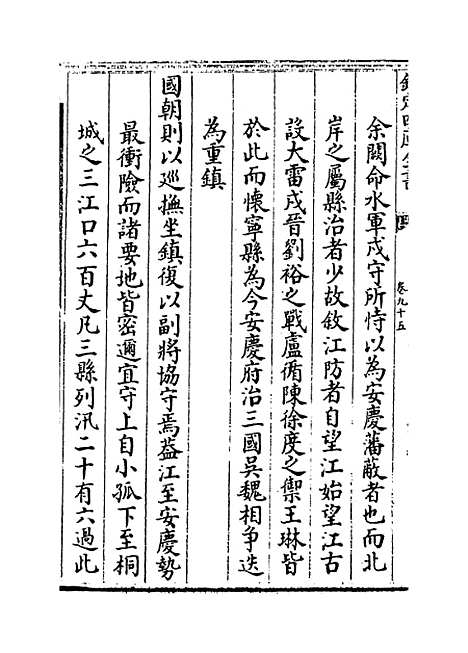 欽定四庫全書
卷九十五
余闕命水軍戍守所恃以為安慶藩蔽者也而北
岸之屬縣治者少故敘江防者自望江始望江古
設大雷戍晉劉裕之戰盧循陳徐度之禦王琳皆
於此而懷寧縣為今安慶府治三國吳魏相爭迭
為重鎮
國朝則以巡撫坐鎮復以副將協守焉葢江至安慶勢
最衝險而諸要地皆密邇宜守上自小孤下至桐
城之三江口六百丈凡三縣列汛二十有六過此